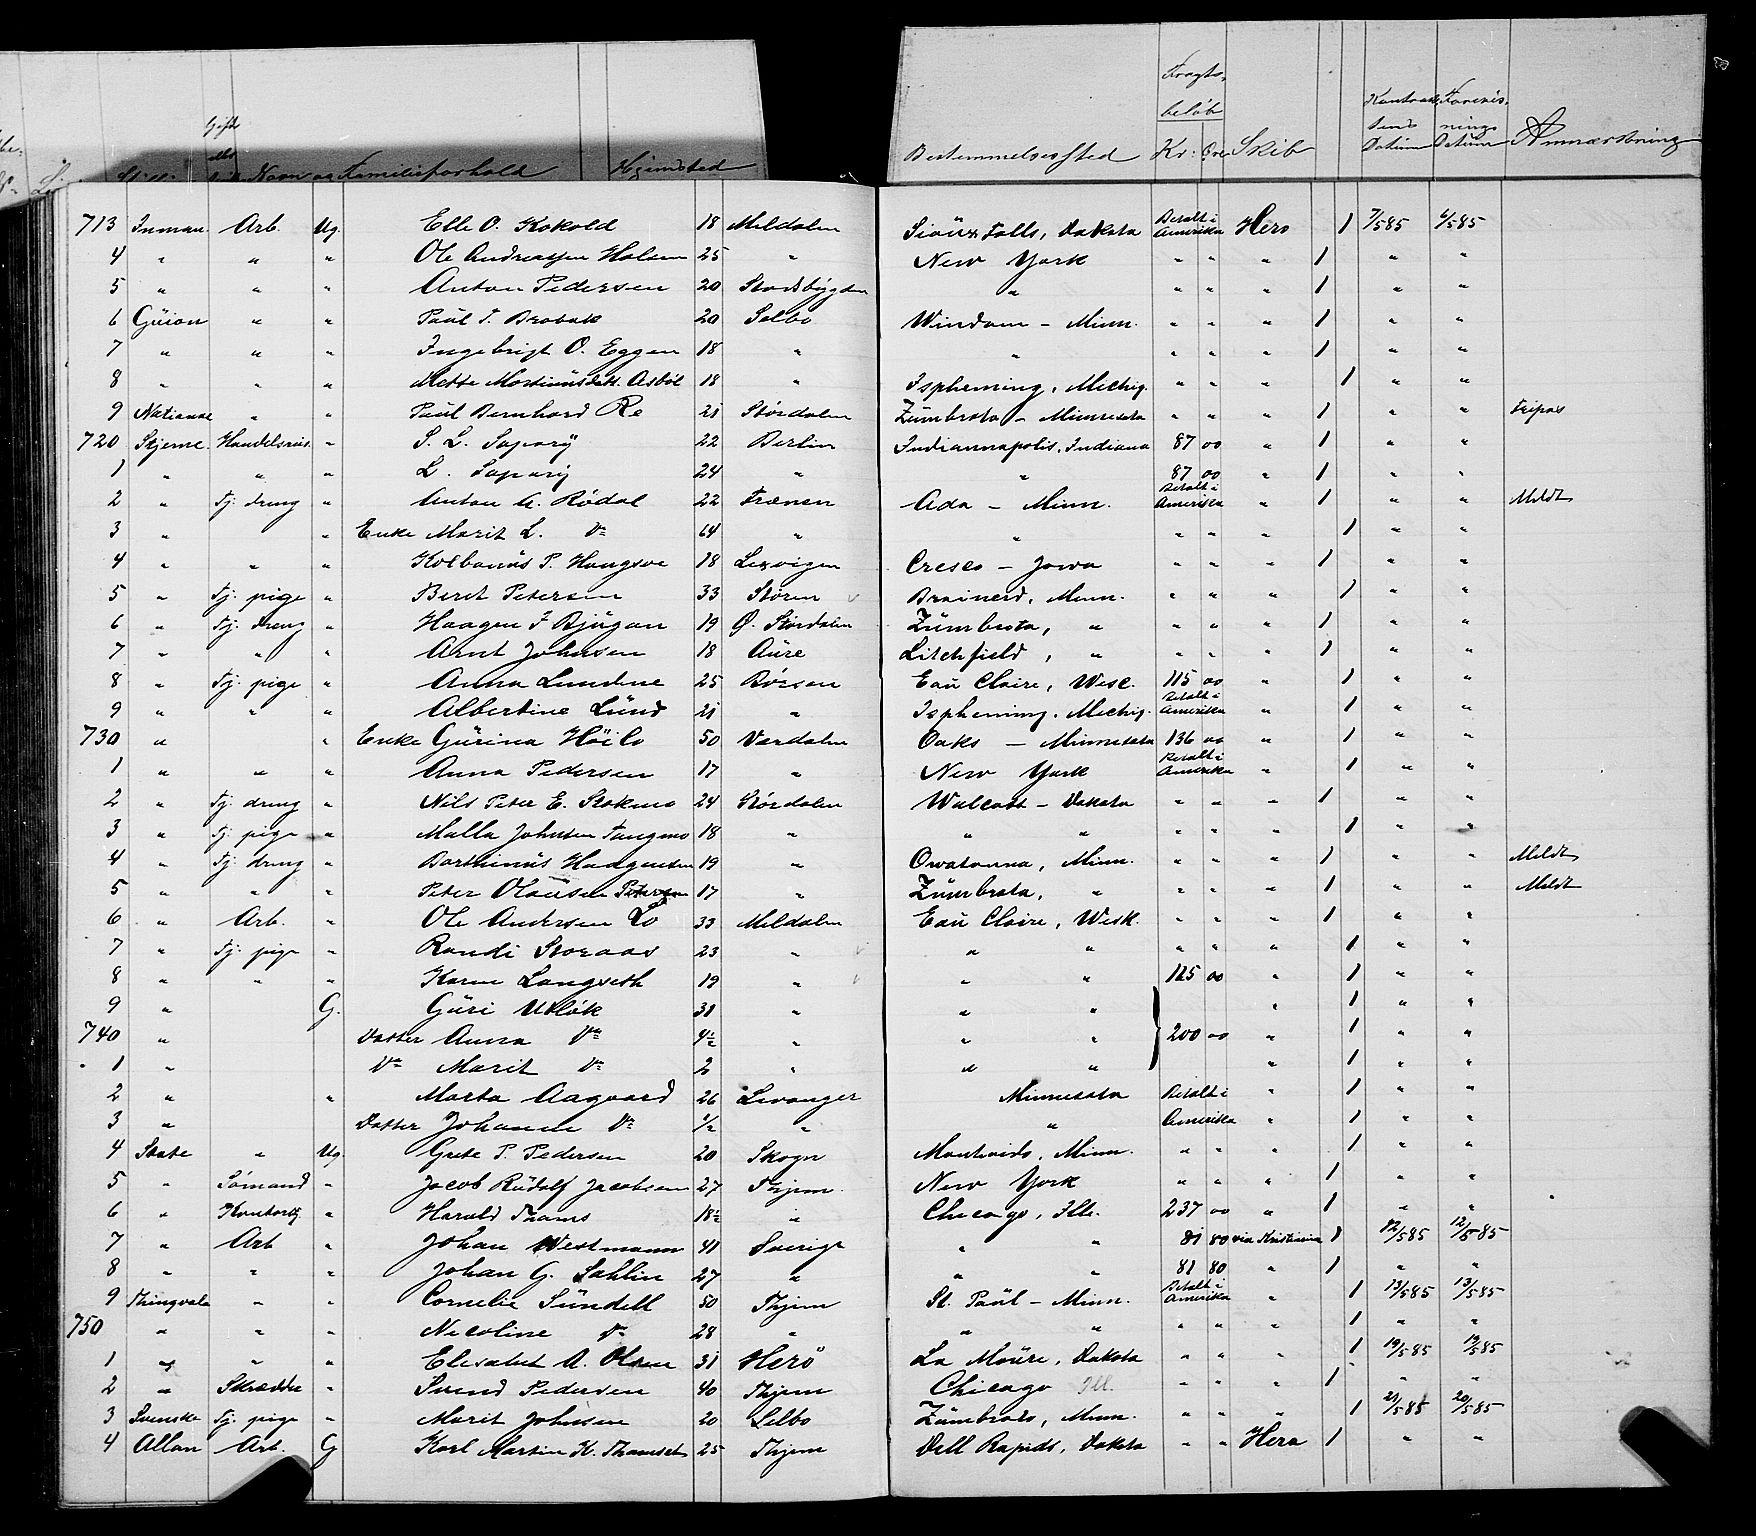 Gift Fragts-
beløb Kontrak- Forevis-
tens nings
Navn og Familieforhold Hjemsted Bestemmelsessted Kr: Øre Skib Datum Datum Anmærkning
713 Inman Arb. Ug. Elle O. Kokold 18 Meldalen Sioux Falls, Dakota Betalt i Amerika Hero 1 7/585 6/585
4 " " " Ole Andreassen Halsen 25 " New York " " " 1 " "
5 " " " Anton Pedersen 20 Stadsbygden " " " " 1 " "
6 Guion " " Paul T. Brobak 20 Selbo Windom - Minn. " " " 1 " "
7 " " " Ingebrigt O. Eggen 18 " " " " " 1 " "
8 " " " Mette Martinusdatt. Asbøl 18 " Ispheming, Mechig. " " " 1 " "
9 Nationae " " Paul Bernhard Re 21 Størdalen Zumbrota - Minnesota " " " 1 " " Fripas
720 Skjerne Handelsreis. " S. L. Sapary 22 Berlin Indiannapolis, Indiana 87 00 " 1 " "
1 " " " L. Sapary 24 " " 87 00 " 1 " "
2 " Tj. dreng " Anton A. Rødal 22 Frænen Ada - Minn. Betalt i Amerika " 1 " " Meldt
3 " " Enke Marit L. Do 64 " " " " " 1 " "
4 " " " Kolbanus P. Haugsve 18 Lexvigen Cresco - Jowa " " " 1 " "
5 " Tj. pige " Berit Petersen 33 Støren Brainerd, Minn. " " " 1 " "
6 " Tj. dreng " Haagen F Bjugan 19 Ø. Størdalen Zumbrota, " " " " 1 " "
7 " " " Arnt Johnsen 18 Aure Litchfield, " " " " 1 " "
8 " Tj. pige " Anna Lundene 25 Børsen Eau Claire, Wisc. 115 00 " 1 " "
9 " " " Albertine Lund 21 " Ispheming. Mechig. Betalt i Amerika " 1 " "
730 " " Enke Gurina Høilo 50 Værdalen Oaks - Minnesota 136 00 " 1 " "
1 " " " Anna Pedersen 17 " New York Betalt i Amerika " 1 " "
2 " Tj. dreng " Nils Peter E. Stokmo 24 Størdalen Walcott - Dakota " " " 1 " "
3 " Tj. pige " Malla Johnsen Tangmo 18 " " " " " " 1 " "
4 " Tj. dreng " Barthinus Haagensen 19 " Owatonna, Minn. " " " 1 " " Meldt
5 " " " Peter Olausen Petersen 17 " Zumbrota, " " " " 1 " " Meldt
6 " Arb. " Ole Andersen Lo 33 Meldalen Eau Claire, Wesk. " " " 1 " "
7 " Tj. pige " Randi Storaas 23 " " " " " " 1 " "
8 " " " Karen Langseth 19 " " " 115 00 " 1 " "
9 " G. Guri Utløk 31 " " " " 1 " "
740 " Datter Anna Do 4 1/2 " " " 200 00 " 1 " "
1 " Do Marit Do 2 " " " " 1 " "
2 " " Marta Aagaard 26 Levanger Minnesota Betalt i " 1 " "
3 " Datter Johanne Do 1/2 " " Amerika " 1 " "
4 State " Ug. Grete P. Pedersen 20 Skogn Montevido, Minn. " " " 1 " "
5 " Sømand " Jacob Rudolf Jacobsen 27 Thjem. New York " " " 1 " "
6 " Kontorbtj. " Harald Thams 18 1/2 " Chicago, Ills. 237 00 " 1 " "
7 " Arb " Johan Westmann 41 Sverige " " 81 80 via Kristiania 1 12/585 12/585
8 " " " Johan G. Sahlin 27 " " " 81 80 " 1 " "
9 Thingvala " " Cornelie Sundell 50 Thjem St. Paul - Minn. Betalt i Amerika " 1 13/585 13/585
750 " " " Nicoline Do 28 " " " " " " 1 " "
1 " " " Elisabet A. Olsen 31 Herø La Moure, Dakota " " " 1 19/585 19/585
2 " Skrædder " Svend Pedersen 40 Thjem Chicago Ill. " " " 1 " "
3 Svenske Tj. pige " Marit Johnsen 20 Selbo Zumbrota, Minn. " " " 1 20/585 20/585
4 Allan Arb. G Karl Martin K. Thomset 25 Thjem Dell Rapids, Dakota " " Hera 1 " "